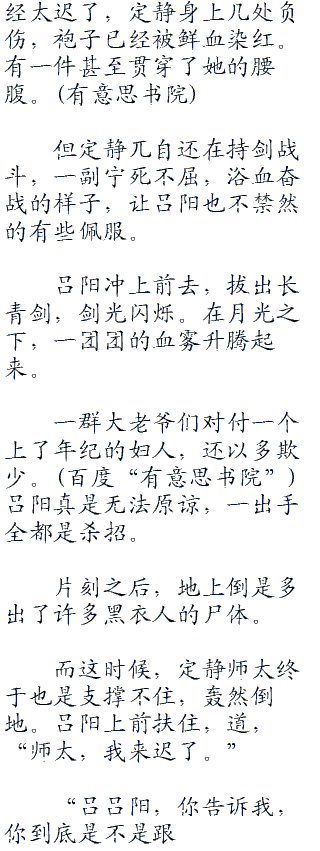 经太迟了，定静身上几处负
伤，袍子已经被鲜血染红。
有一件甚至贯穿了她的腰
腹。(有意思书院)
但定静兀自还在持剑战
斗，一副宁死不屈，浴血奋
战的样子，让吕阳也不禁然
的有些佩服。
吕阳冲上前去，拔出长
青剑，剑光闪烁。在月光之
下，一团团的血雾升腾起
来。
一群大老爷们对付一个
上了年纪的妇人，还以多欺
少。(百度“有意思书院”)
吕阳真是无法原谅，一出手
全都是杀招。
片刻之后，地上倒是多
出了许多黑衣人的尸体。
而这时候，定静师太终
于也是支撑不住，轰然倒
地。吕阳上前扶住，道，
“师太，我来迟了。”
“吕吕阳，你告诉我，
你到底是不是跟